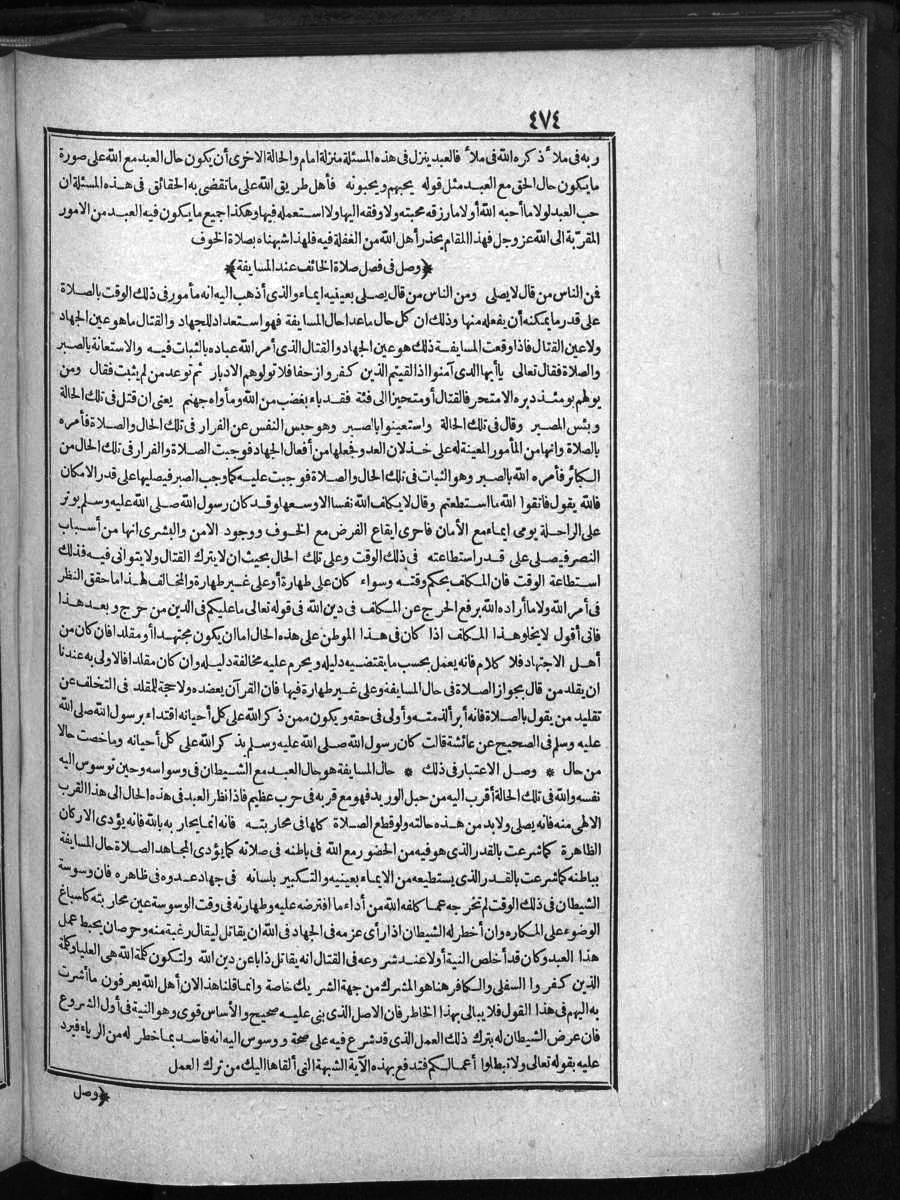 ٤٧٤
ربه فى ملأ ذكره الله فى ملأ فالعبد ينزل فى هذه المسئلة منزلة امام والحالة الاخرى أن يكون حال العبد مع الله على صورة
ما يكون حال الحق مع العبد مثل قوله يحبهم ويحبونه فأهل طريق الله على ما تقضى به الحقائق فى هذه المسئلة ان
حب العبد لولا ما أحبه الله أولا ما رزقه محبته ولا وفقه اليها ولا استعمله فيها وهكذا جميع ما يكون فيه العبد من الامور
المقربة الى الله عز وجل فهذا المقام يحذر أهل الله من الغفلة فيه فلهذا شبهناه بصلاة الخوف
﴿وصل فى فصل صلاة الخائف عند المسايفة﴾
فمن الناس من قال لا يصلى ومن الناس من قال يصلى بعينيه ايماء والذى أذهب اليه انه مأمور فى ذلك الوقت بالصلاة
على قدر ما يمكنه أن يفعله منها وذلك ان كل حال ما عدا حال المسايفة فهو استعداد للجهاد والقتال ما هو عين الجهاد
ولا عين القتال فاذا وقعت المسايفة ذلك هو عين الجهاد والقتال الذى أمر الله عباده بالثبات فيه والاستعانة بالصبر
والصلاة فقال تعالى يا أيها الذى آمنوا اذا لقيتم الذين كفروا زحفا فلا تولوهم الادبار ثم توعد من لم يثبت فقال ومن
يولهم يومئذ دبره الا متحرفا لقتال أو متحيزا الى فئة فقد باء بغضب من الله ومأواه جهنم يعنى ان قتل فى تلك الحالة
وبئس المصير وقال فى تلك الحالة واستعينوا بالصبر وهو حبس النفس عن الفرار فى تلك الحال والصلاة فأمره
بالصلاة وانها من المأمور المعينة له على خذلان العدو فجعلها من أفعال الجهاد فوجبت الصلاة والفرار فى تلك الحال من
الكبائر فأمره الله بالصبر وهو الثبات فى تلك الحال والصلاة فوجبت عليه كما وجب الصبر فيصليها على قدر الامكان
فالله يقول فاتقوا الله ما استطعتم وقال لا يكلف الله نفسا الا وسعها وقد كان رسول الله صلى الله عليه وسلم يوتر
على الراحلة يومى ايماء مع الأمان فاحرى ايقاع الفرض مع الخوف ووجود الامن والبشرى انها من أسباب
النصر فيصلى على قدر استطاعته فى ذلك الوقت وعلى تلك الحال بحيث ان لا يترك القتال ولا يتوانى فيه فذلك
استطاعة الوقت فان المكلف بحكم وقته وسواء كان على طهارة أو على غير طهارة والمخالف لهذا ما حقق النظر
فى أمر الله ولا ما أراده الله برفع الحرج عن المكلف فى دين الله فى قوله تعالى ما عليكم فى الدين من حرج وبعد هذا
فانى أقول لا يخلو هذا المكلف اذا كان فى هذا الموطن على هذه الحال اما ان يكون مجتهدا أو مقلدا فان كان من
أهل الاجتهاد فلا كلام فانه يعمل بحسب ما يقتضيه دليله ويحرم عليه مخالفة دليله وان كان مقلدا فالاولى به عندنا
ان يقلد من قال بجواز الصلاة فى حال المسايفة وعلى غير طهارة فيها فان القرآن يعضده ولا حجة للمقلد فى التخلف عن
تقليد من يقول بالصلاة فانه أبرأ لذمته وأولى فى حقه ويكون ممن ذكر الله على كل أحيانه اقتداء برسول الله صلى الله
عليه وسلم فى الصحيح عن عائشة قالت كان رسول الله صلى الله عليه وسلم يذكر الله على كل أحيانه وما خصت حالا
من حال * وصل الاعتبار فى ذلك * حال المسايفة هو حال العبد مع الشيطان فى وسواسه وحين توسوس اليه
نفسه والله فى تلك الحالة أقرب اليه من حبل الوريد فهو مع قربه فى حرب عظيم فاذا نظر العبد فى هذه الحال الى هذا القرب
الالهى منه فانه يصلى ولا بد من هذه حالته ولو قطع الصلاة كلها فى محاربته فانه انما يحاربه بالله فانه يؤدى الاركان
الظاهرة كما شرعت بالقدر الذى هو فيه من الحضور مع الله فى باطنه فى صلاته كما يؤدى المجاهد الصلاة حال المسايفة
بباطنه كما شرعت بالقدر الذى يستطيعه من الايماء بعينيه والتكبير بلسانه فى جهاد عدوه فى ظاهره فان وسوسة
الشيطان فى ذلك الوقت لم تخرجه عما كلفه الله من أداء ما افترضه عليه وطهارته فى وقت الوسوسة عين محاربته كاسباغ
الوضوء على المكاره وان أخطر له الشيطان اذا رأى عزمه فى الجهاد فى الله ان يقاتل ليقال رغبة منه وحرصا ان يحبط عمل
هذا العبد وكان قد أخلص النية أولا عند شروعه فى القتال انه يقاتل ذابا عن دين الله ولتكون كلمة الله هى العليا وكلمة
الذين كفروا السفلى والكافر هنا هو المشرك من جهة الشريك خاصة وانما قلنا هذا لان أهل الله يعرفون ما أشرت
به اليهم فى هذا القول فلا يبالى بهذا الخاطر فان الاصل الذى بنى عليه صحيح والأساس قوى وهو النية فى أول الشروع
فان عرض الشيطان له بترك ذلك العمل الذى قد شرع فيه على صحة ووسوس اليه انه فاسد بما خطر له من الرياء فيرد
عليه بقوله تعالى ولا تبطلوا أعمالكم فتدفع بهذه الآية الشبهة التى ألقاها اليك من ترك العمل
﴿وصل